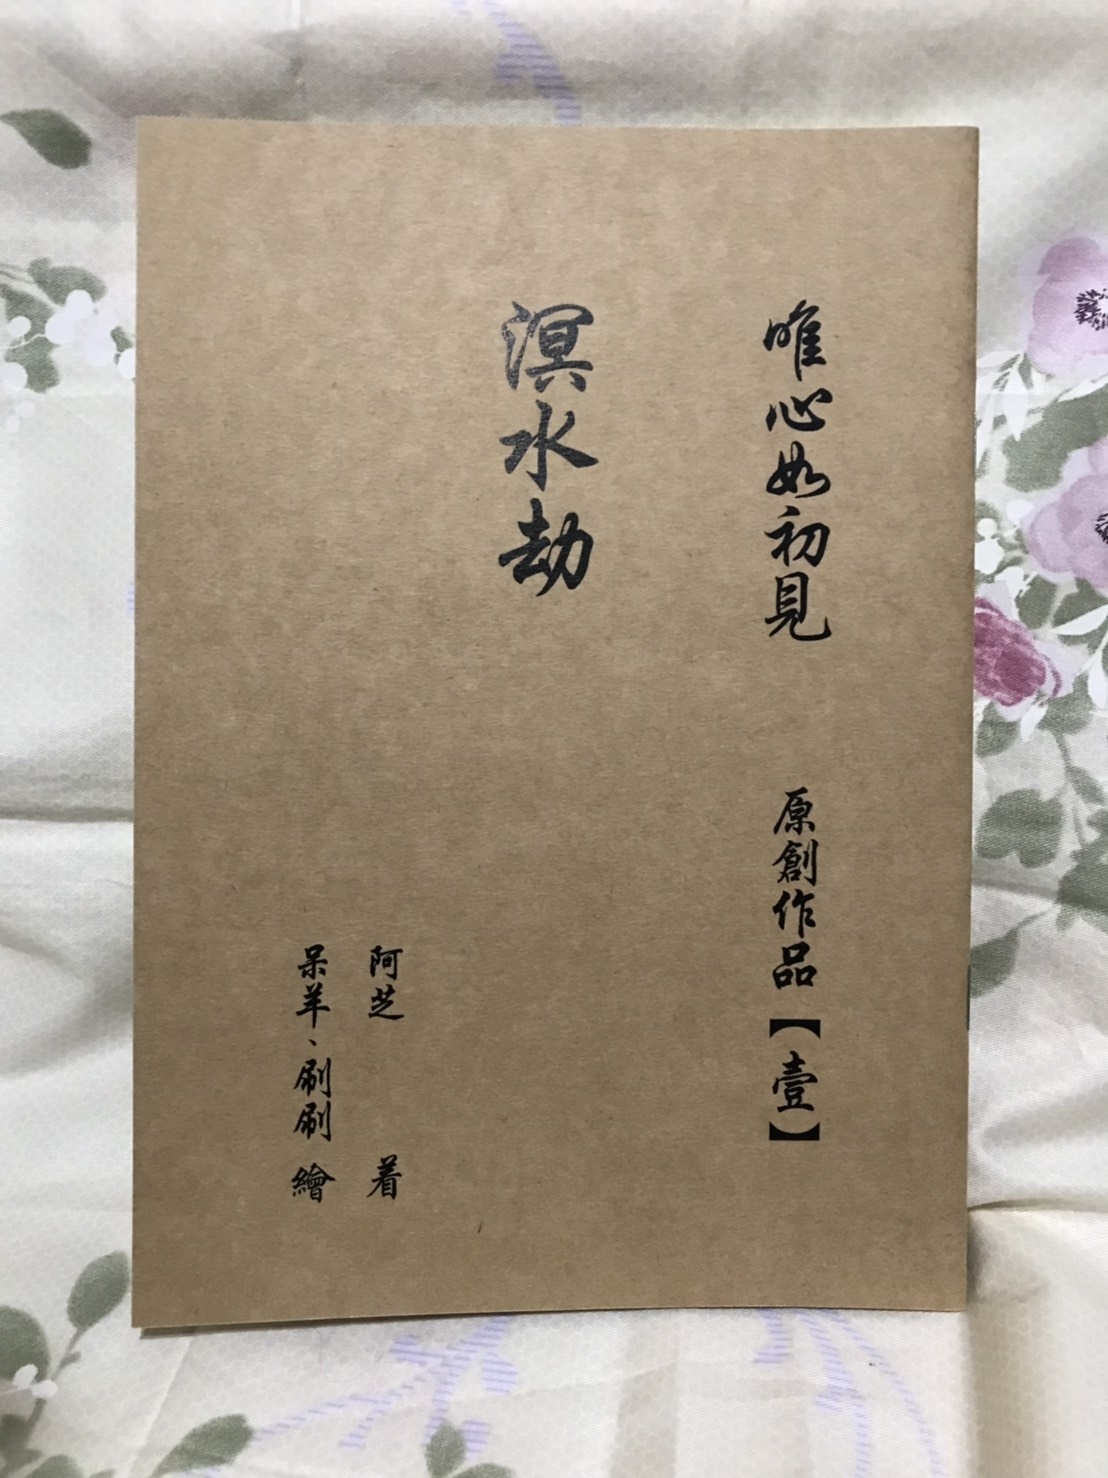 唯心如初見 原創作品【壹】
溟水劫
阿芝 着
呆羊、刷刷 繪